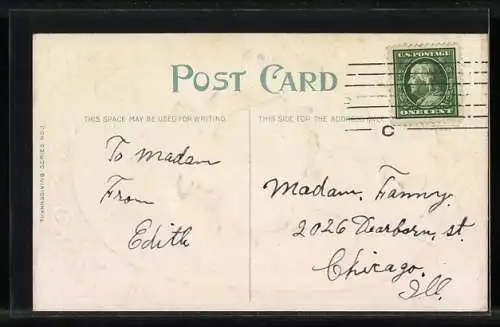 POST CARD
U.S. POSTAGE
ONE CENT
C
THIS SPACE MAY BE USED FOR WRITING.
THIS SIDE FOR THE ADDRESS ONLY.
THANKSGIVING SERIES NO.
To Madam
From
Edith
Madam. Fanny.
2026 Dearborn, st.
Chicago.
Ill.